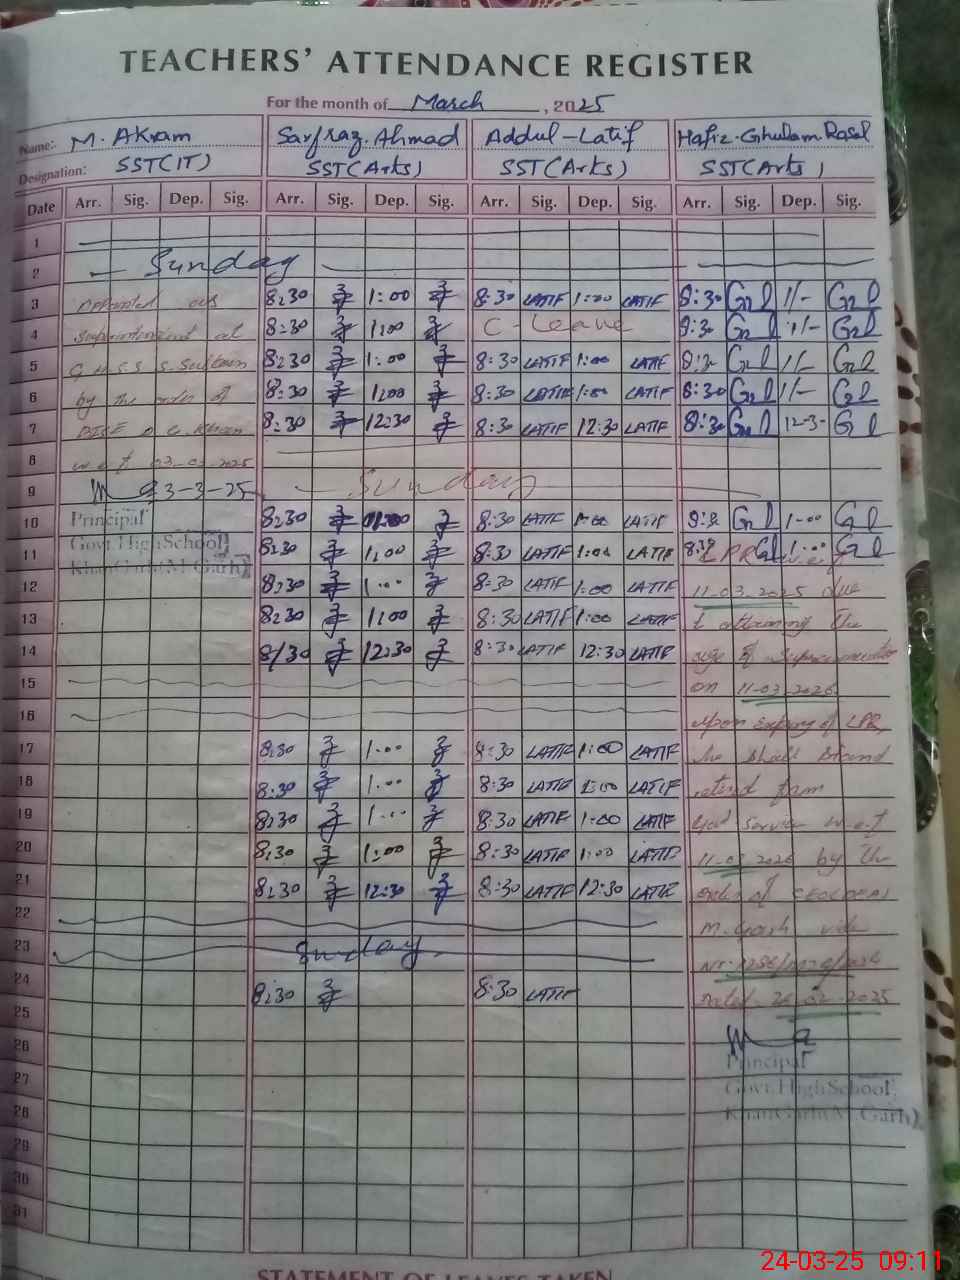 TEACHERS' ATTENDANCE REGISTER
For the month of March, 2025
Name: M. AKram Sarfraz Ahmad Addul-Latif Hafiz Ghulam Rasol
Designation: SST(IT) SST(Arts) SST(Arts) SST(Arts)
Date Arr. Sig. Dep. Sig. Arr. Sig. Dep. Sig. Arr. Sig. Dep. Sig. Arr. Sig. Dep. Sig.
1
2 Sunday
3 8:30 1:00 8:30 LATIF 1:00 LATIF 8:30 1/-
4 8:30 1:00 C-Leave 8:30 1/-
5 8:30 1:00 8:30 LATIF 1:00 LATIF 1/-
6 by the order of 8:30 1:00 8:30 LATIF 1:00 LATIF 8:30 1/-
7 8:30 12:30 8:30 LATIF 12:30 LATIF 8:30 12-3-
8 w.e.f 03-03-2025
9 3-3-25 Sunday
Principal
10 8:30 8:30 LATIF 1:00 LATIF 1-00
Govt. High School
11 8:30 1:00 8:30 LATIF 1:00 LATIF 8:30 LPR w.e.f
KhanGarh(M.Garh)
12 8:30 1:00 8:30 LATIF 1:00 LATIF 11-03-2025 due
13 8:30 1:00 8:30 LATIF 1:00 LATIF t attaining the
14 8/30 12:30 8:30 LATIF 12:30 LATIF age of
15 on 11-03-2026
16 upon expiry of LPR,
17 8:30 1:00 8:30 LATIF 1:00 LATIF he shall stand
18 8:30 1:00 8:30 LATIF 1:00 LATIF retired from
19 8:30 1:00 8:30 LATIF 1:00 LATIF Govt Service w.e.f
20 8:30 1:00 8:30 LATIF 1:00 LATIF 11-03-2026 by the
21 8:30 12:30 8:30 LATIF 12:30 LATIF order of
22 M.Garh vide
23 Sunday
24 8:30 8:30 LATIF
25 Dated 26-02-2025
26
Principal
27
Govt. High School
28
KhanGarh(M.Garh)
29
30
31
STATEMENT OF LEAVES TAKEN
24-03-25 09:11